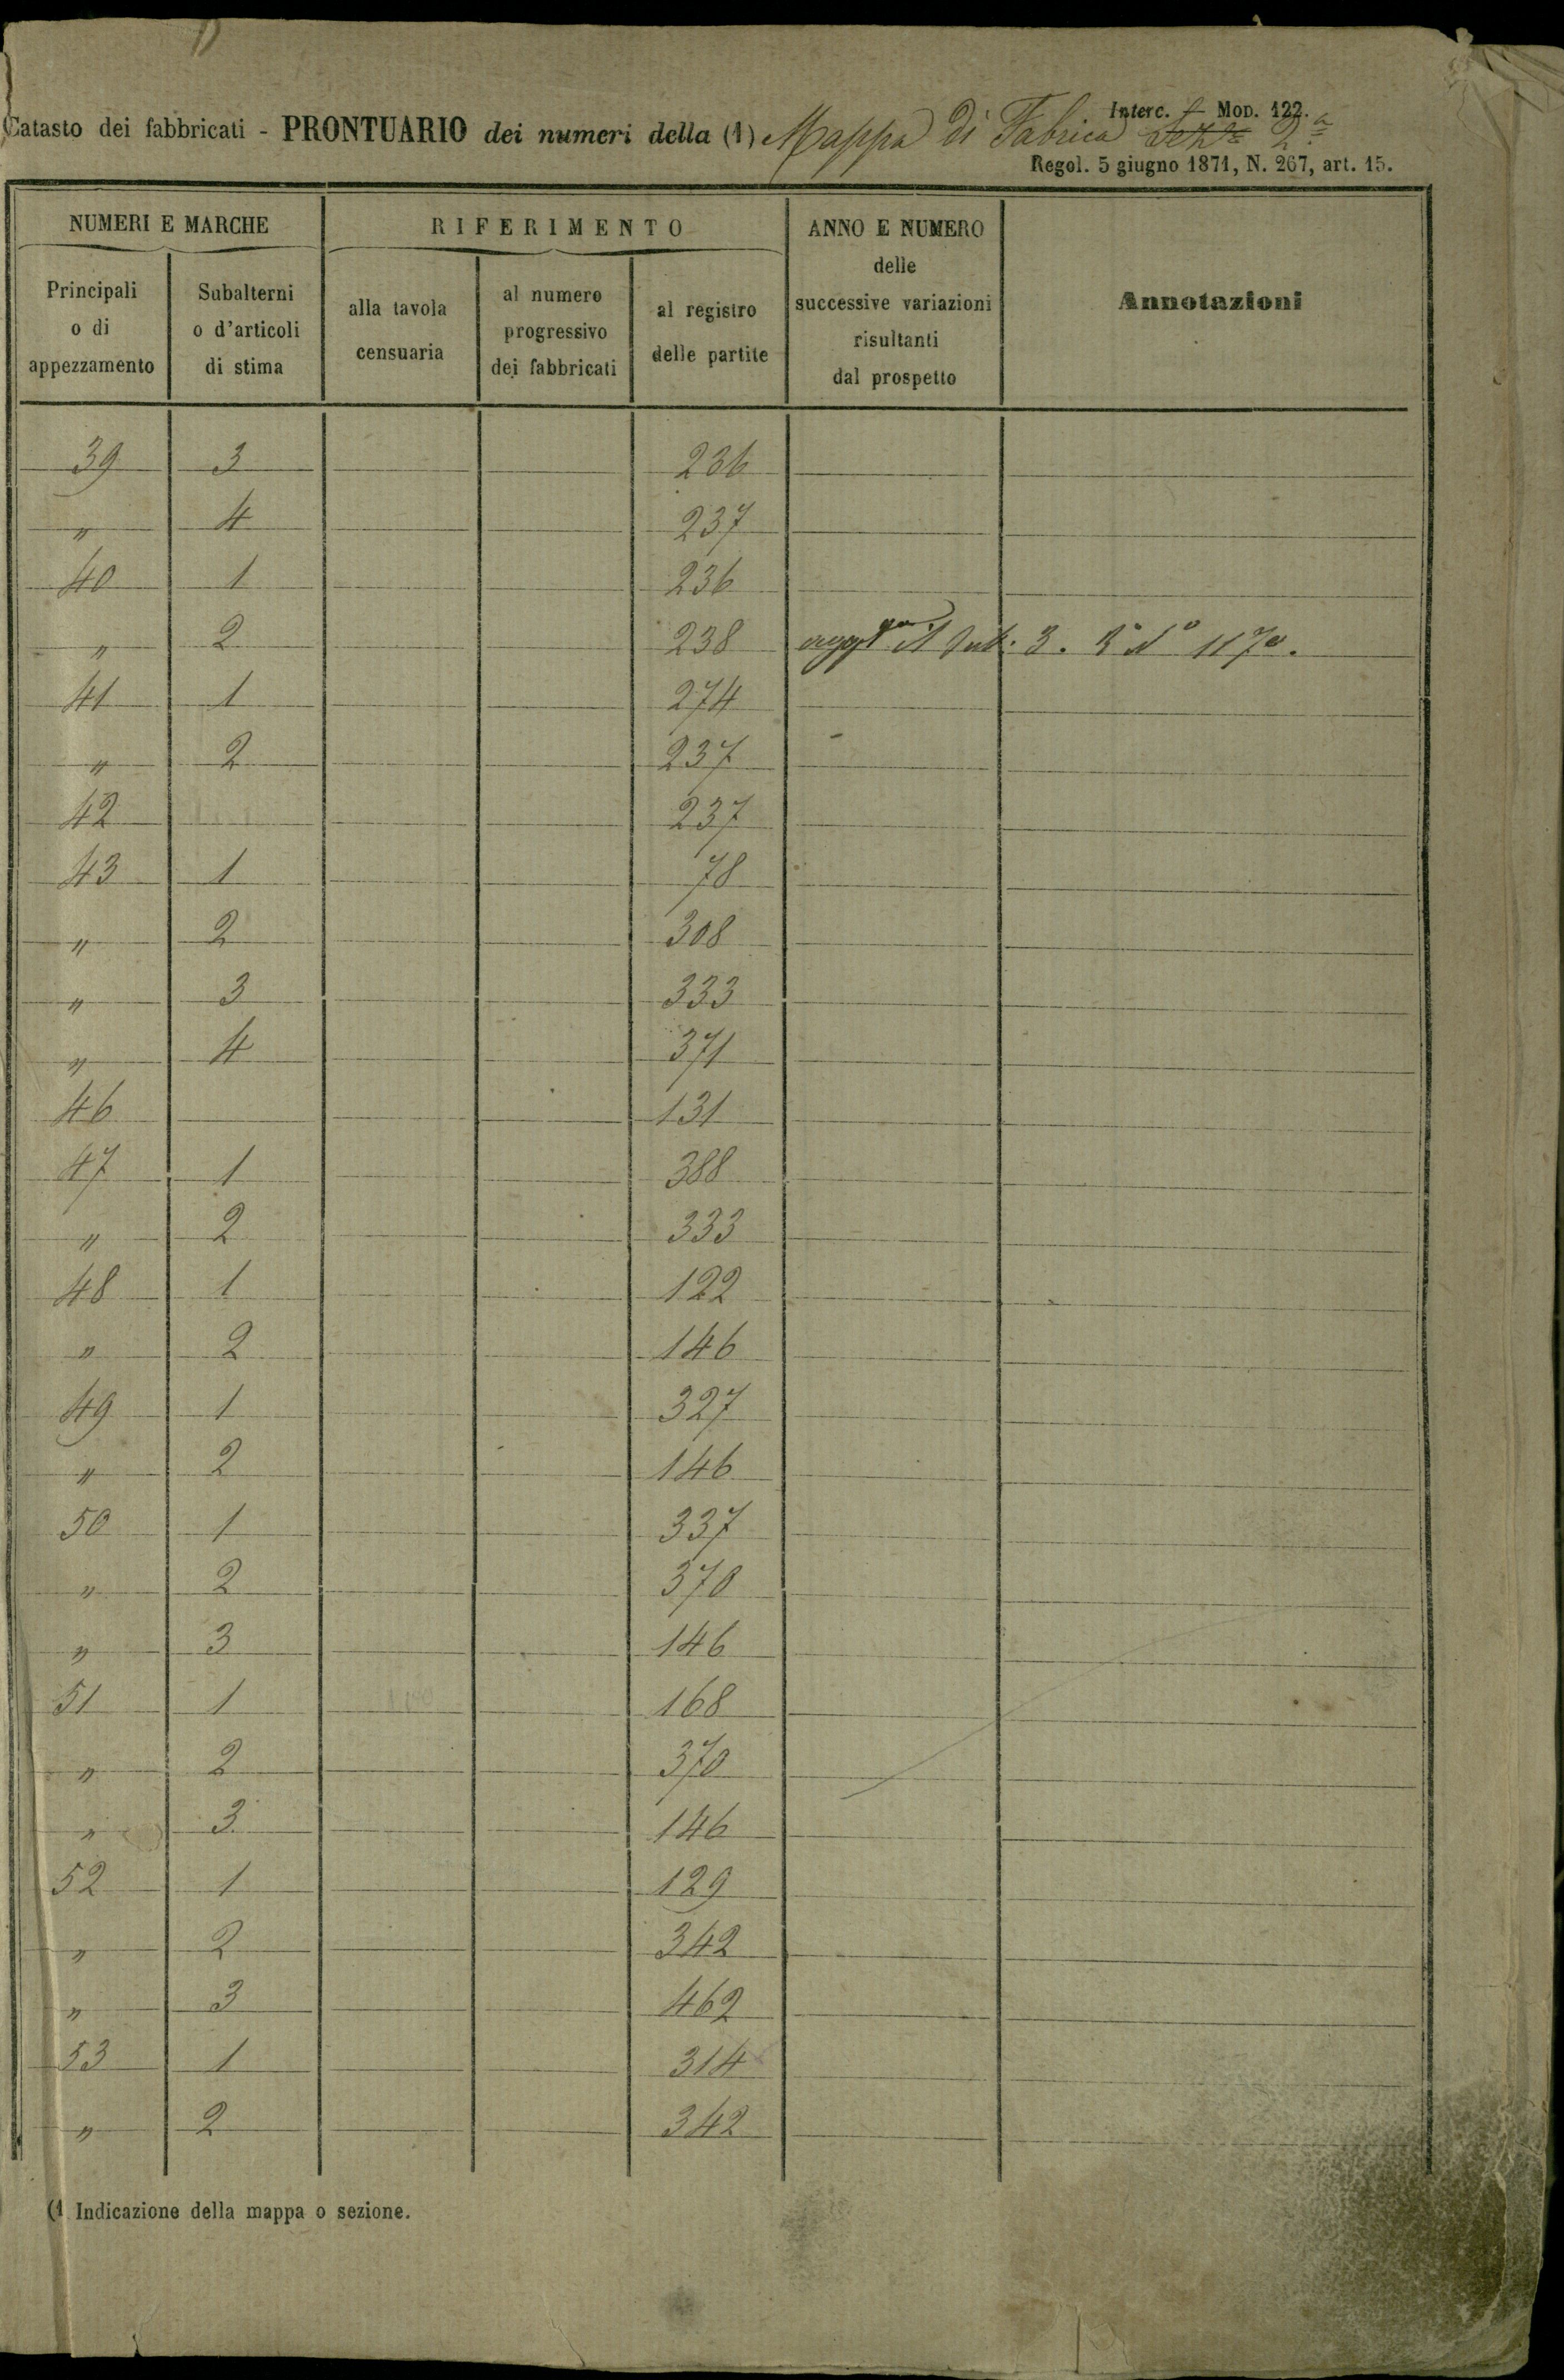 Interc. Mod. 122.
Catasto dei fabbricati - PRONTUARIO dei numeri della (1) Mappa di Fabrica 2.a
Regol. 5 giugno 1871, N. 267, art. 15.
NUMERI E MARCHE RIFERIMENTO ANNO E NUMERO delle successive variazioni risultanti dal prospetto Annotazioni
Principali o di appezzamento Subalterni o d'articoli di stima alla tavola censuaria al numero progressivo dei fabbricati al registro delle partite
39 3 236
" 4 237
40 1 236
" 2 238 il Sub. 3. 1170.
41 1 274
" 2 237
42 237
43 1 78
" 2 308
" 3 333
" 4 371
46 131
47 1 388
" 2 333
48 1 122
" 2 146
49 1 327
" 2 146
50 1 337
" 2 370
" 3 146
51 1 168
" 2 370
" 3 146
52 1 129
" 2 342
" 3 462
53 1 314
" 2 342
(1 Indicazione della mappa o sezione.